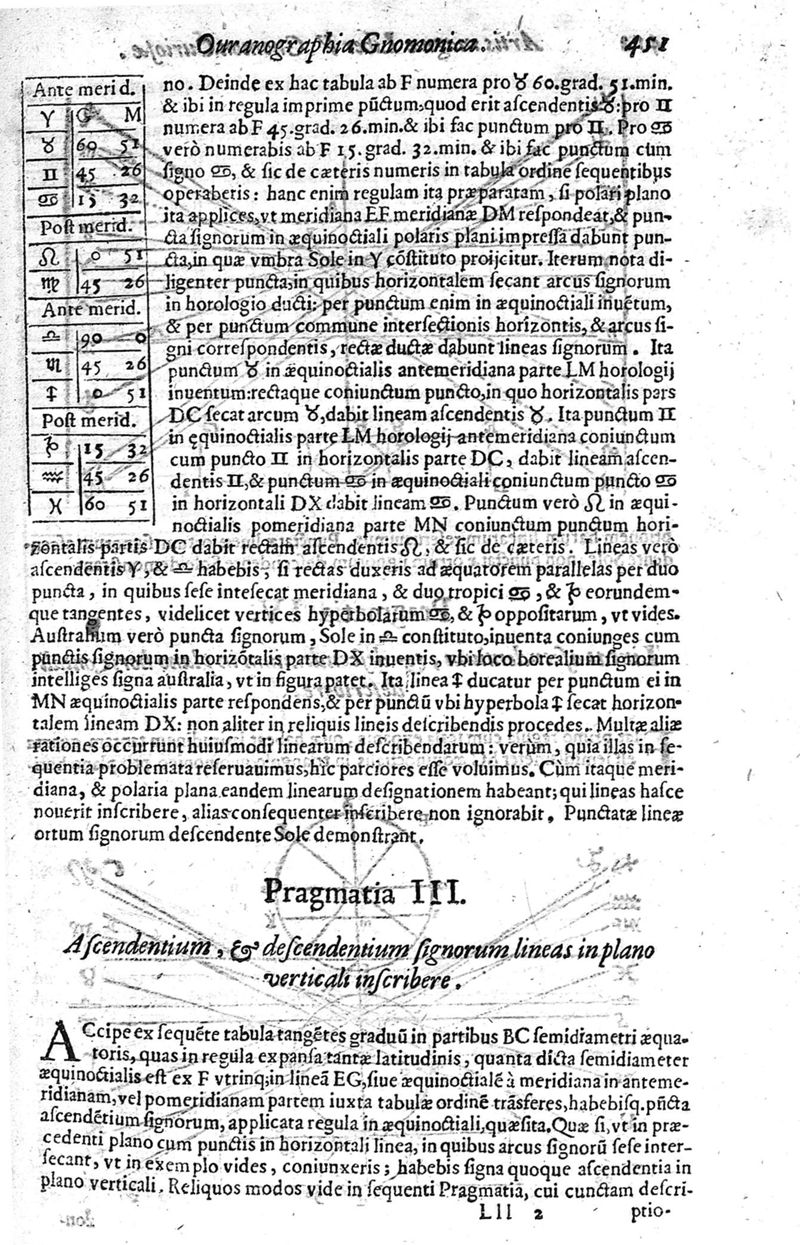 Ouranographia Gnomonica. 451
Ante merid.
♈ G M
♉ 60 51
♊ 45 26
♋ 15 32
Post merid.
♌ 0 51
♍ 45 26
Ante merid.
♎ 90 0
♏ 45 26
♐ 0 51
Post merid.
♑ 15 32
♒ 45 26
♓ 60 51
no. Deinde ex hac tabula ab F numera pro ♉ 60. grad. 51. min.
& ibi in regula imprime pũctum, quod erit aſcendentis ♉: pro ♊
numera ab F 45. grad. 26. min. & ibi fac punctum pro ♊. Pro ♋
verò numerabis ab F 15. grad. 32. min. & ibi fac punctum cum
ſigno ♋, & ſic de cæteris numeris in tabula ordine ſequentibus
operaberis: hanc enim regulam ita præparatam, ſi polari plano
ita applices, vt meridiana EF meridianæ DM reſpondeat, & pun-
cta ſignorum in æquinoctiali polaris plani impreſſa dabunt pun-
cta, in quæ vmbra Sole in ♈ cõſtituto proijcitur. Iterum nota di-
ligenter puncta, in quibus horizontalem ſecant arcus ſignorum
in horologio ducti: per punctum enim in æquinoctiali inuẽtum,
& per punctum commune interſectionis horizontis, & arcus ſi-
gni correſpondentis, rectæ ductæ dabunt lineas ſignorum. Ita
punctum ♉ in æquinoctialis antemeridiana parte LM horologij
inuentum: rectaque coniunctum puncto, in quo horizontalis pars
DC ſecat arcum ♉, dabit lineam aſcendentis ♉. Ita punctum ♊
in ęquinoctialis parte LM horologij antemeridiana coniunctum
cum puncto ♊ in horizontalis parte DC, dabit lineam aſcen-
dentis ♊, & punctum ♋ in æquinoctiali coniunctum puncto ♋
in horizontali DX dabit lineam ♋. Punctum verò ♌ in æqui-
noctialis pomeridiana parte MN coniunctum punctum hori-
zontalis partis DC dabit rectam aſcendentis ♌, & ſic de cæteris. Lineas verò
aſcendentis ♈, & ♎ habebis, ſi rectas duxeris ad æquatorem parallelas per duo
puncta, in quibus ſeſe inteſecat meridiana, & duo tropici ♋, & ♑ eorundem-
que tangentes, videlicet vertices hyperbolarum ♋, & ♑ oppoſitarum, vt vides.
Auſtralium verò puncta ſignorum, Sole in ♎ conſtituto, inuenta coniunges cum
punctis ſignorum in horizõtalis parte DX inuentis, vbi loco borealium ſignorum
intelliges ſigna auſtralia, vt in figura patet. Ita linea ♐ ducatur per punctum ei in
MN æquinoctialis parte reſpondens, & per punctũ vbi hyperbola ♐ ſecat horizon-
talem lineam DX: non aliter in reliquis lineis deſcribendis procedes. Multæ aliæ
rationes occurrunt huiuſmodi linearum deſcribendarum: verùm, quia illas in ſe-
quentia problemata reſeruauimus, hìc parciores eſſe voluimus. Cùm itaque meri-
diana, & polaria plana eandem linearum deſignationem habeant; qui lineas haſce
nouerit inſcribere, alias conſequenter inſcribere non ignorabit. Punctatæ lineæ
ortum ſignorum deſcendente Sole demonſtrant.
Pragmatia III.
Aſcendentium, & deſcendentium ſignorum lineas in plano
verticali inſcribere.
ACcipe ex ſequẽte tabula tangẽtes graduũ in partibus BC ſemidiametri æqua-
toris, quas in regula expanſa tantæ latitudinis, quanta dicta ſemidiameter
æquinoctialis eſt ex F vtrinq; in lineã EG, ſiue æquinoctialẽ à meridiana in anteme-
ridianam, vel pomeridianam partem iuxta tabulæ ordinẽ trãsferes, habebiſq. pũcta
aſcendẽtium ſignorum, applicata regula in æquinoctiali, quæſita. Quæ ſi, vt in præ-
cedenti plano cum punctis in horizontali linea, in quibus arcus ſignorũ ſeſe inter-
ſecant, vt in exemplo vides, coniunxeris; habebis ſigna quoque aſcendentia in
plano verticali. Reliquos modos vide in ſequenti Pragmatia, cui cunctam deſcri-
Lll 2 ptio-